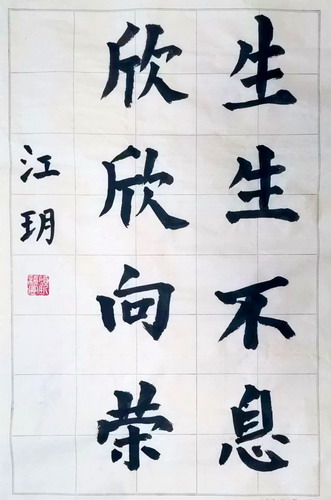 生生不息
欣欣向荣
江玥